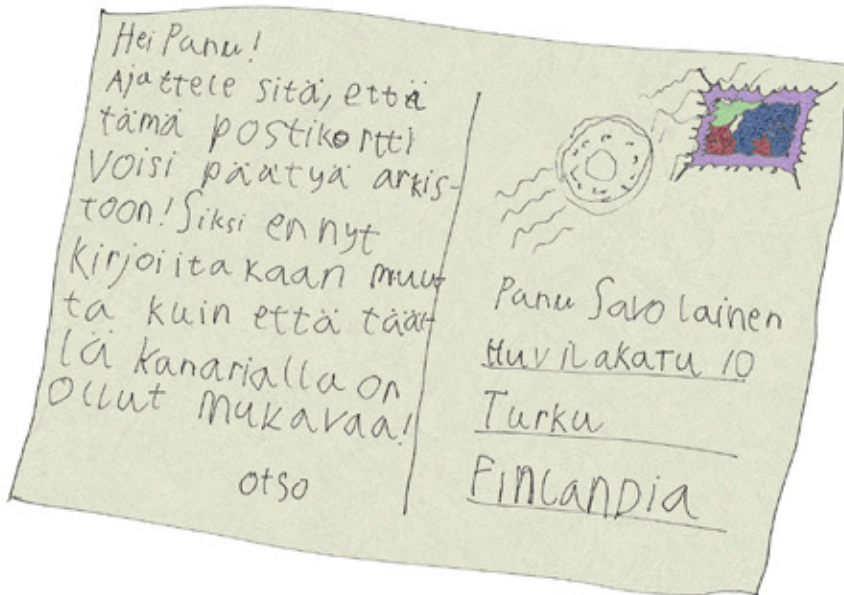 Hei Panu!
Ajattele sitä, että
tämä postikortti
voisi päätyä arkis-
toon! Siksi en nyt
kirjoiita kaan muut-
ta kuin että tääl-
lä kanarialla on
ollut mukavaa!
otso
Panu Savolainen
Huvilakatu 10
Turku
FINLANDIA